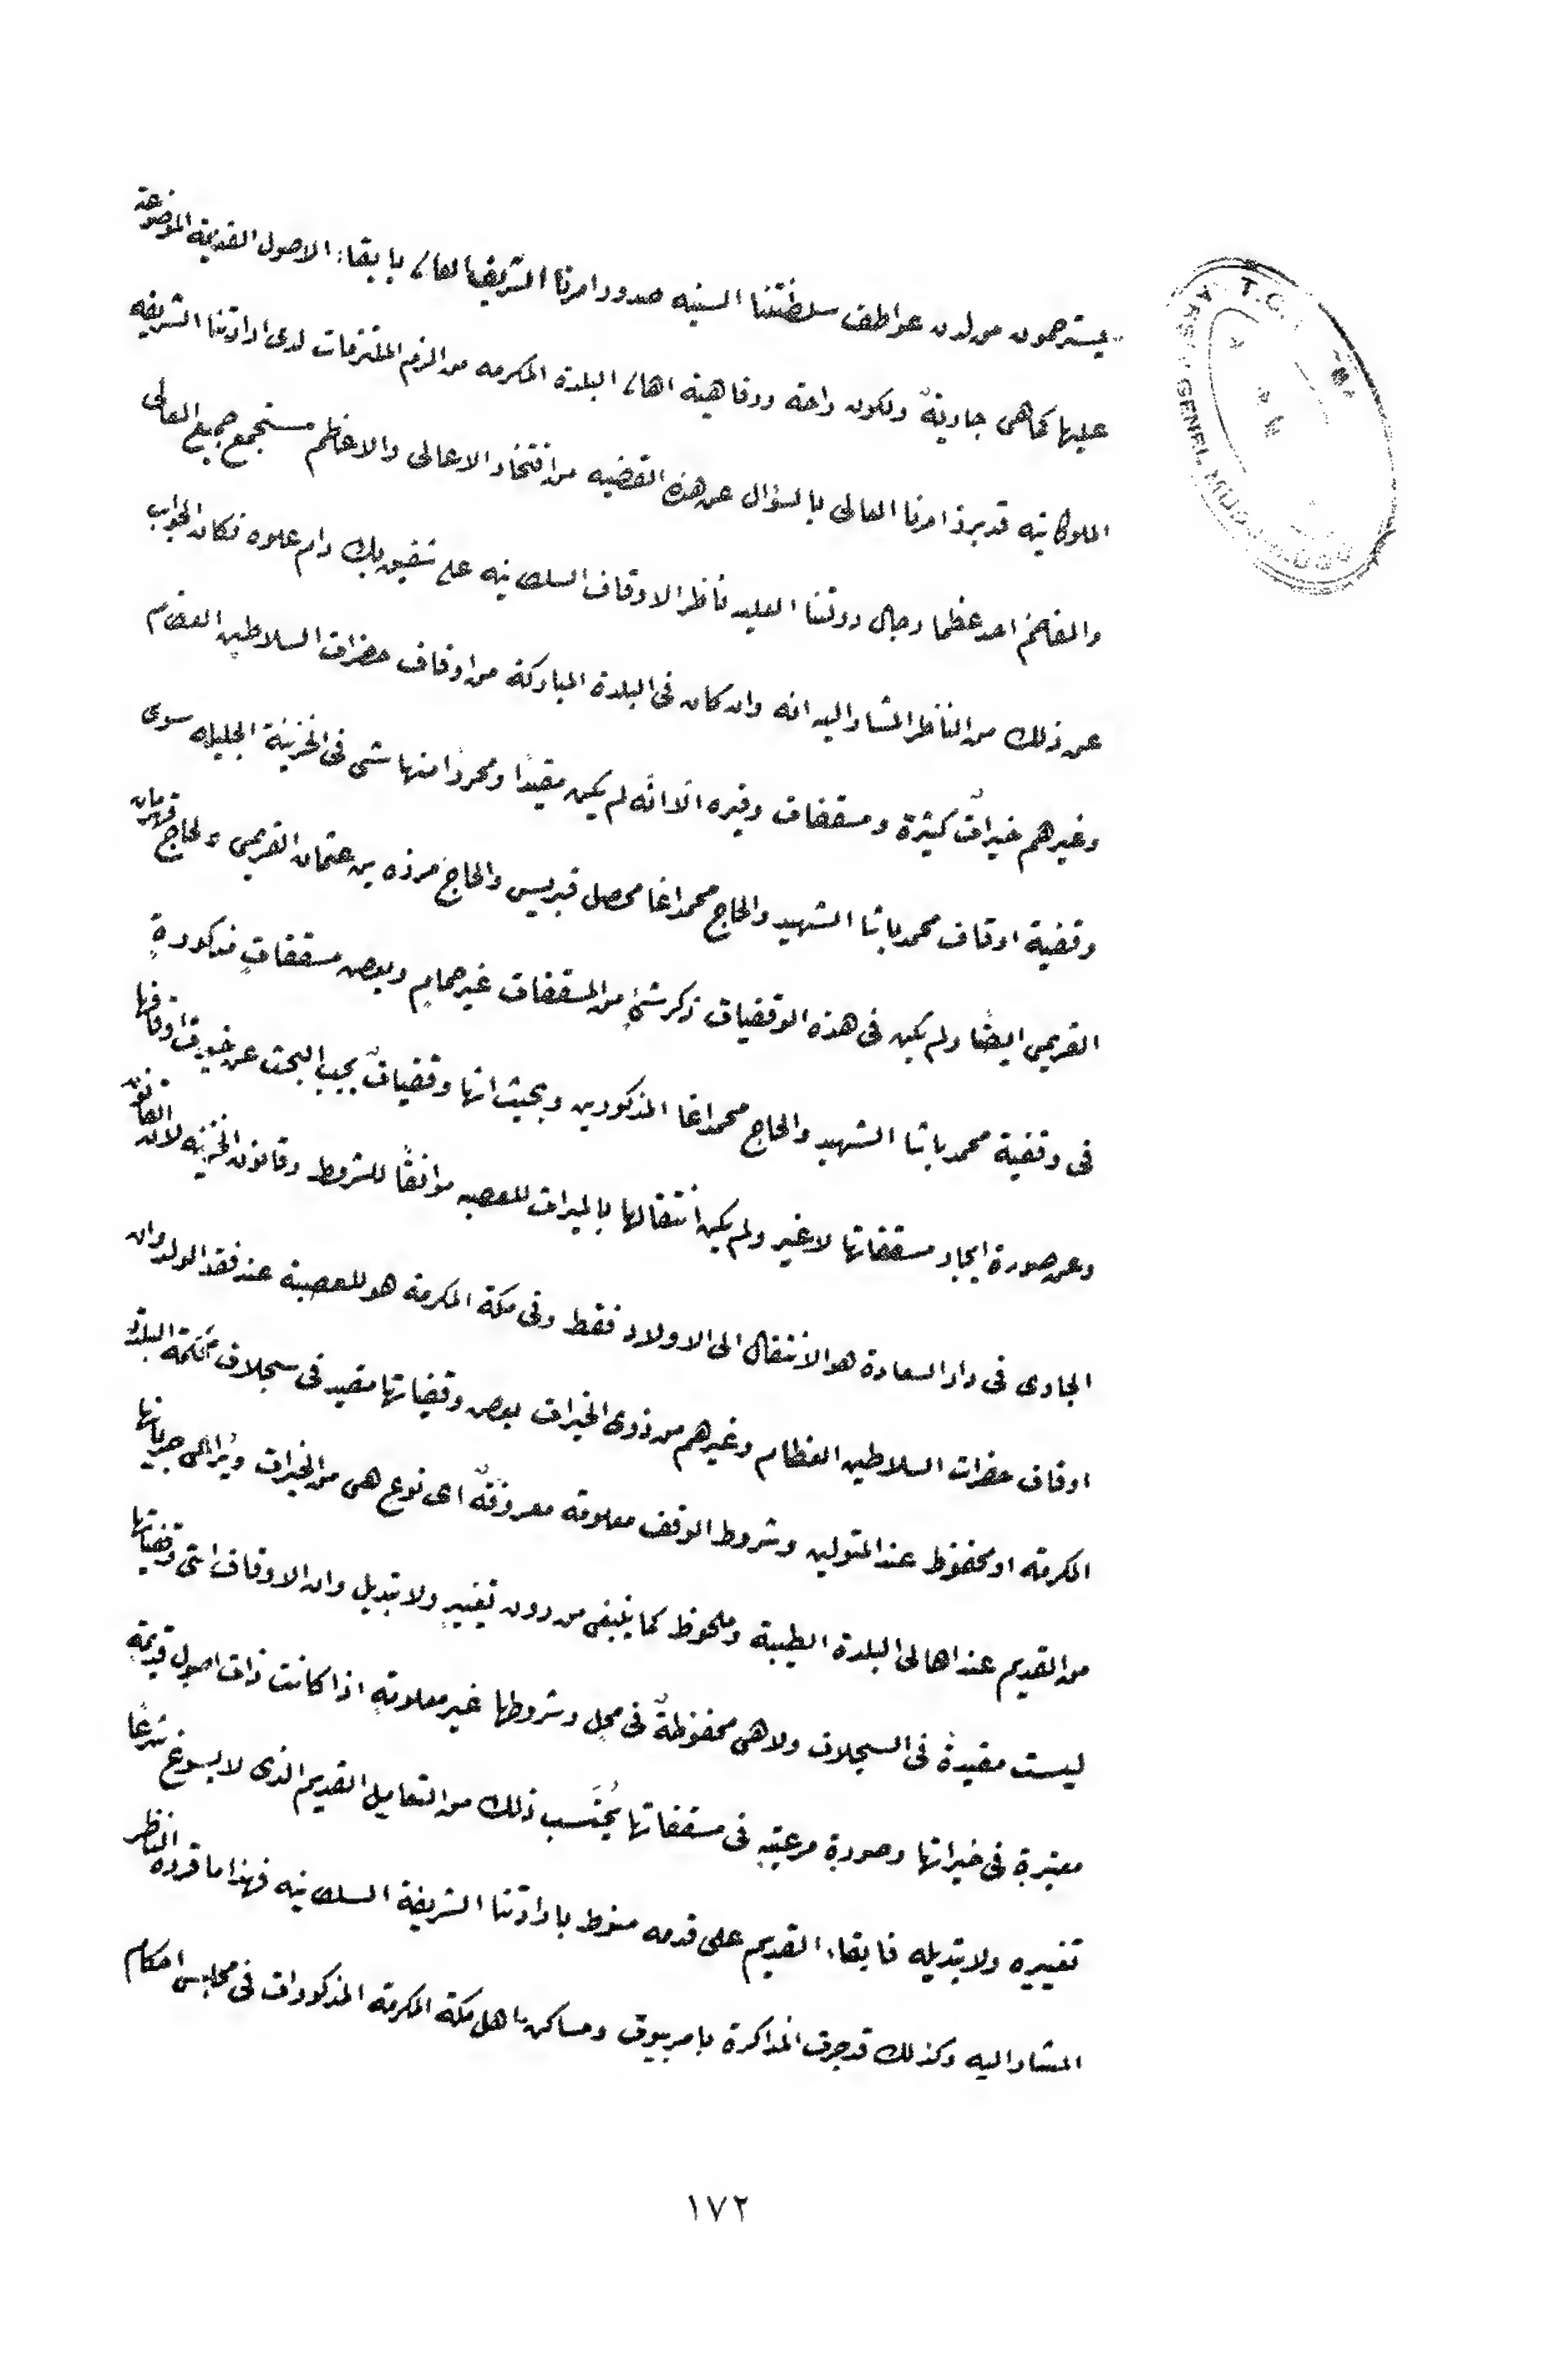 يسترحمون من لدن عواطف سلطنتنا السنيه صدور امرنا الشريف العالى بابقاء الاصول القديمة الموضوعة
عليها كما هى جاريةً ولكون راحة ورفاهية اهالى البلدة المكرمه من الزم الملتزمات لدى ارادتنا الشريفه
الملوكانيه قد برز امرنا العالى بالسؤال عن هذه القضيه من افتخار الاعالى والاعاظم مستجمع جميع المعالى
والمفاخم احد عظما رجال دولتنا العليه ناظر الاوقاف السلطانيه على شفيق بك دام علوه فكان الجواب
عن ذلك من الناظر المشار اليه انه وان كان فى البلدة المباركة من اوقاف حضرات السلاطين العضام
وغيرهم خيراتٌ كثيرة ومسقفات وفيره الّا انّه لم يكن مقيدًا ومحررًا منها شى فى الخزينة الجليله سوى
وقفية اوقاف محمد باشا الشهيد والحاج محمد اغا محصل قبريس والحاج مرزه بن عثمان القريمى والحاج قهرمان
القريمى ايضًا ولم يكن فى هذه الوقفيات ذكر شئٍ من المسقفات غير حمامٍ وبعض مسقفاتٍ مذكورةٍ
فى وقفية محمد باشا الشهيد والحاج محمد اغا المذكورين وبحيث انها وقفياتٌ يجب البحث عن خيرات اوقافها
وعن صورة ايجار مسقفاتها لاغير ولم يكن انتقالها بالميراث للعصبه موافقًا للشروط وقانون الخزينه لان القانون
الجارى فى دار السعادة هو الانتقال الى الاولاد فقط وفى مكة المكرمة هو للعصبة عند فقد الولد وان
اوقاف حضرات السلاطين العظام وغيرهم من ذوى الخيرات بعض وقفياتها مقيد فى سجلات محكمة البلدة
المكرمه او محفوظ عند المتولين وشروط الوقف معلومة معروفةٌ اى نوع هى من الخيرات ويُراعى جريانها
من القديم عند اهالى البلدة الطيبة وملحوظ كما ينبغى من دون تغييرٍ ولا تبديل وان الاوقاف التى وقفياتها
ليست مقيدةً فى السجلات ولا هى محفوظةٌ فى محلٍ وشروطها غير معلومةٍ اذا كانت ذات اصول قديمة
معتبرة فى خيراتها وصورة مرعيّةٍ فى مسقفاتها يُحتَسب ذلك من التعامل القديم الذى لا يسوغ شرعًا
تغييره ولا تبديله فابقاء القديم على قدمه منوط بارادتنا الشريفة السلطانيه فهذا ما قرره الناظر
المشار اليه وكذلك قد جرت المذاكرة بامر بيوت ومساكن اهل مكة المكرمه المذكورات فى مجلس احكام
١٧٢
T.C.
GENEL MÜD